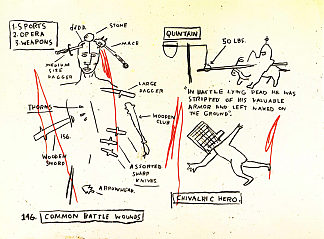 1. SPORTS
2. OPERA
3. WEAPONS
STONE
MACE
MEDIUM
SIZE
DAGGER
LARGE
DAGGER
THORNS
WOODEN
CLUB
156.
WOODEN
SWORD
ASSORTED
SHARP
KNIVES
ARROWHEAD.
196. COMMON BATTLE WOUNDS
QUINTAIN
50 LBS.
"IN BATTLE LYING DEAD HE WAS
STRIPTED OF HIS VALUABLE
ARMOR AND LEFT NAKED ON
THE GROUND".
CHIVALRIC HERO.